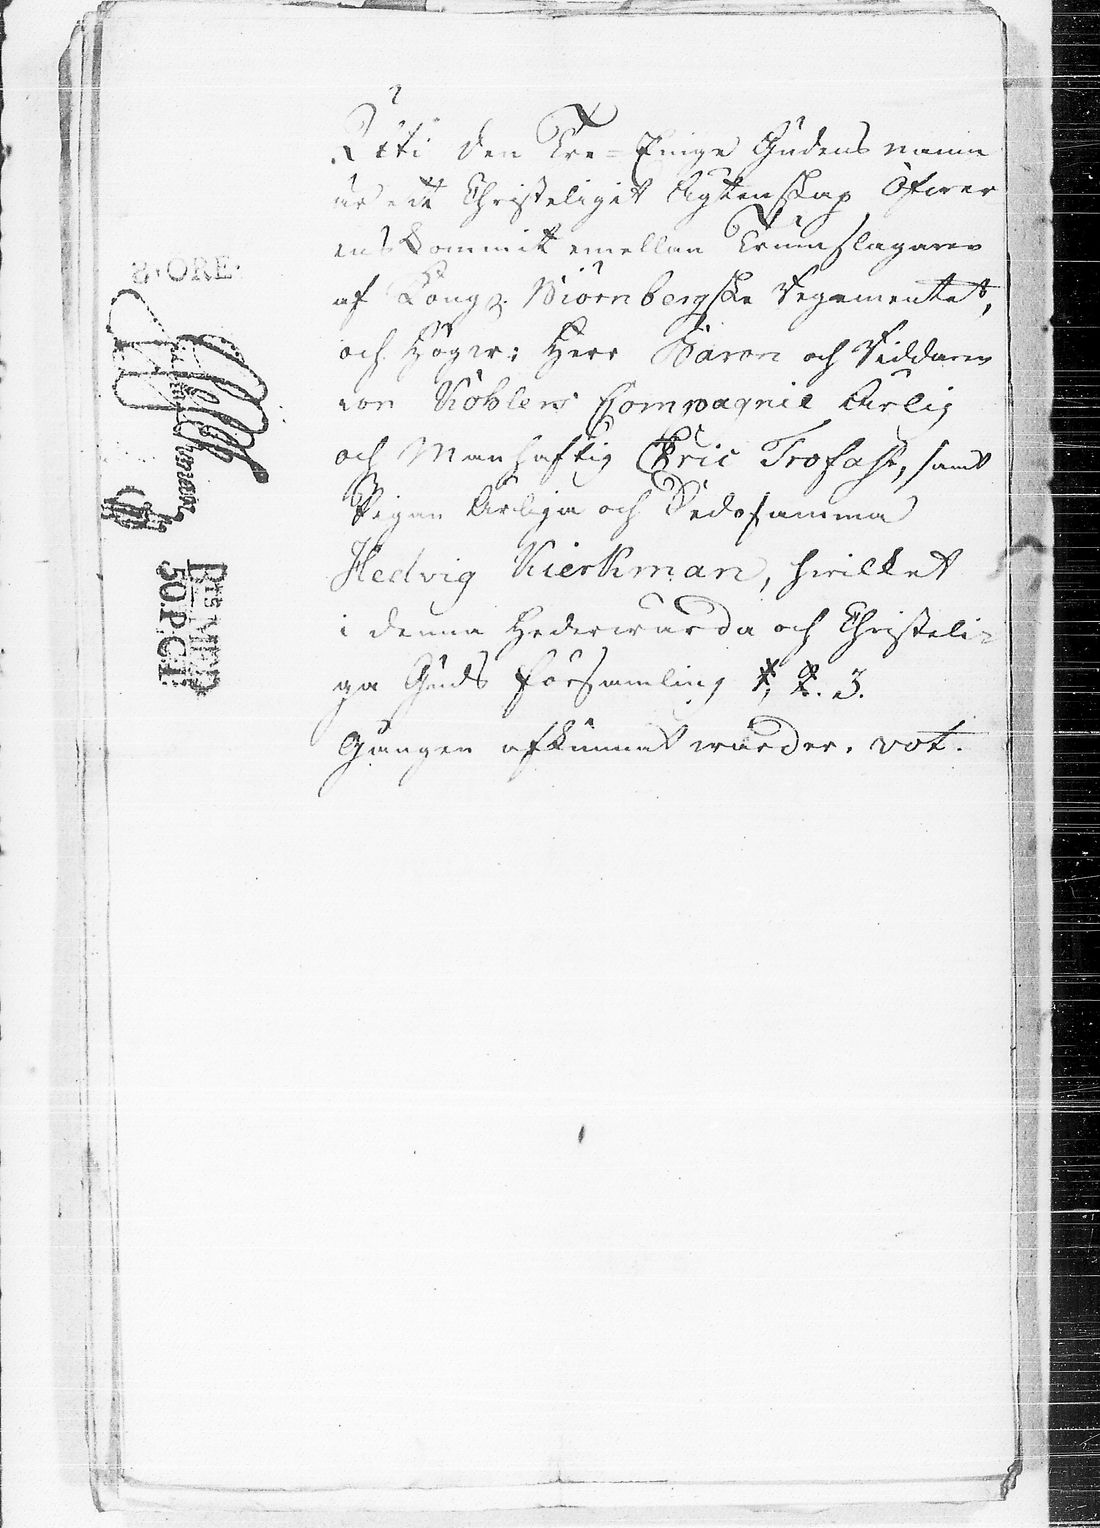 Uti den Tre-Eniga Gudens namn
är ett Christeligit Ägtenskap Öfwer
ens kommit emellan Trumslagaren
af Kongl. Biörnbergske Regementet,
och Högw: Herr Baron och Riddaren
von Köhlers Compagnie Ärlig
och Manhaftig Eric Trofast, samt
Pigan Ärliga och Dedosamma
Hedvig Kierkman, hwilket
i denna Hederwärda och Christeli-
ga Guds Församling 1, 2. 3.
Gången afkunnat warder. vot.
8·ORE·
50.P.CT.